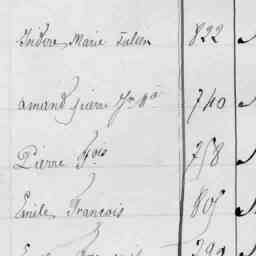 Isidore Marie Julien 822
Amand Pierre Jn Ma 740
Pierre Fois 758
Emile François 805